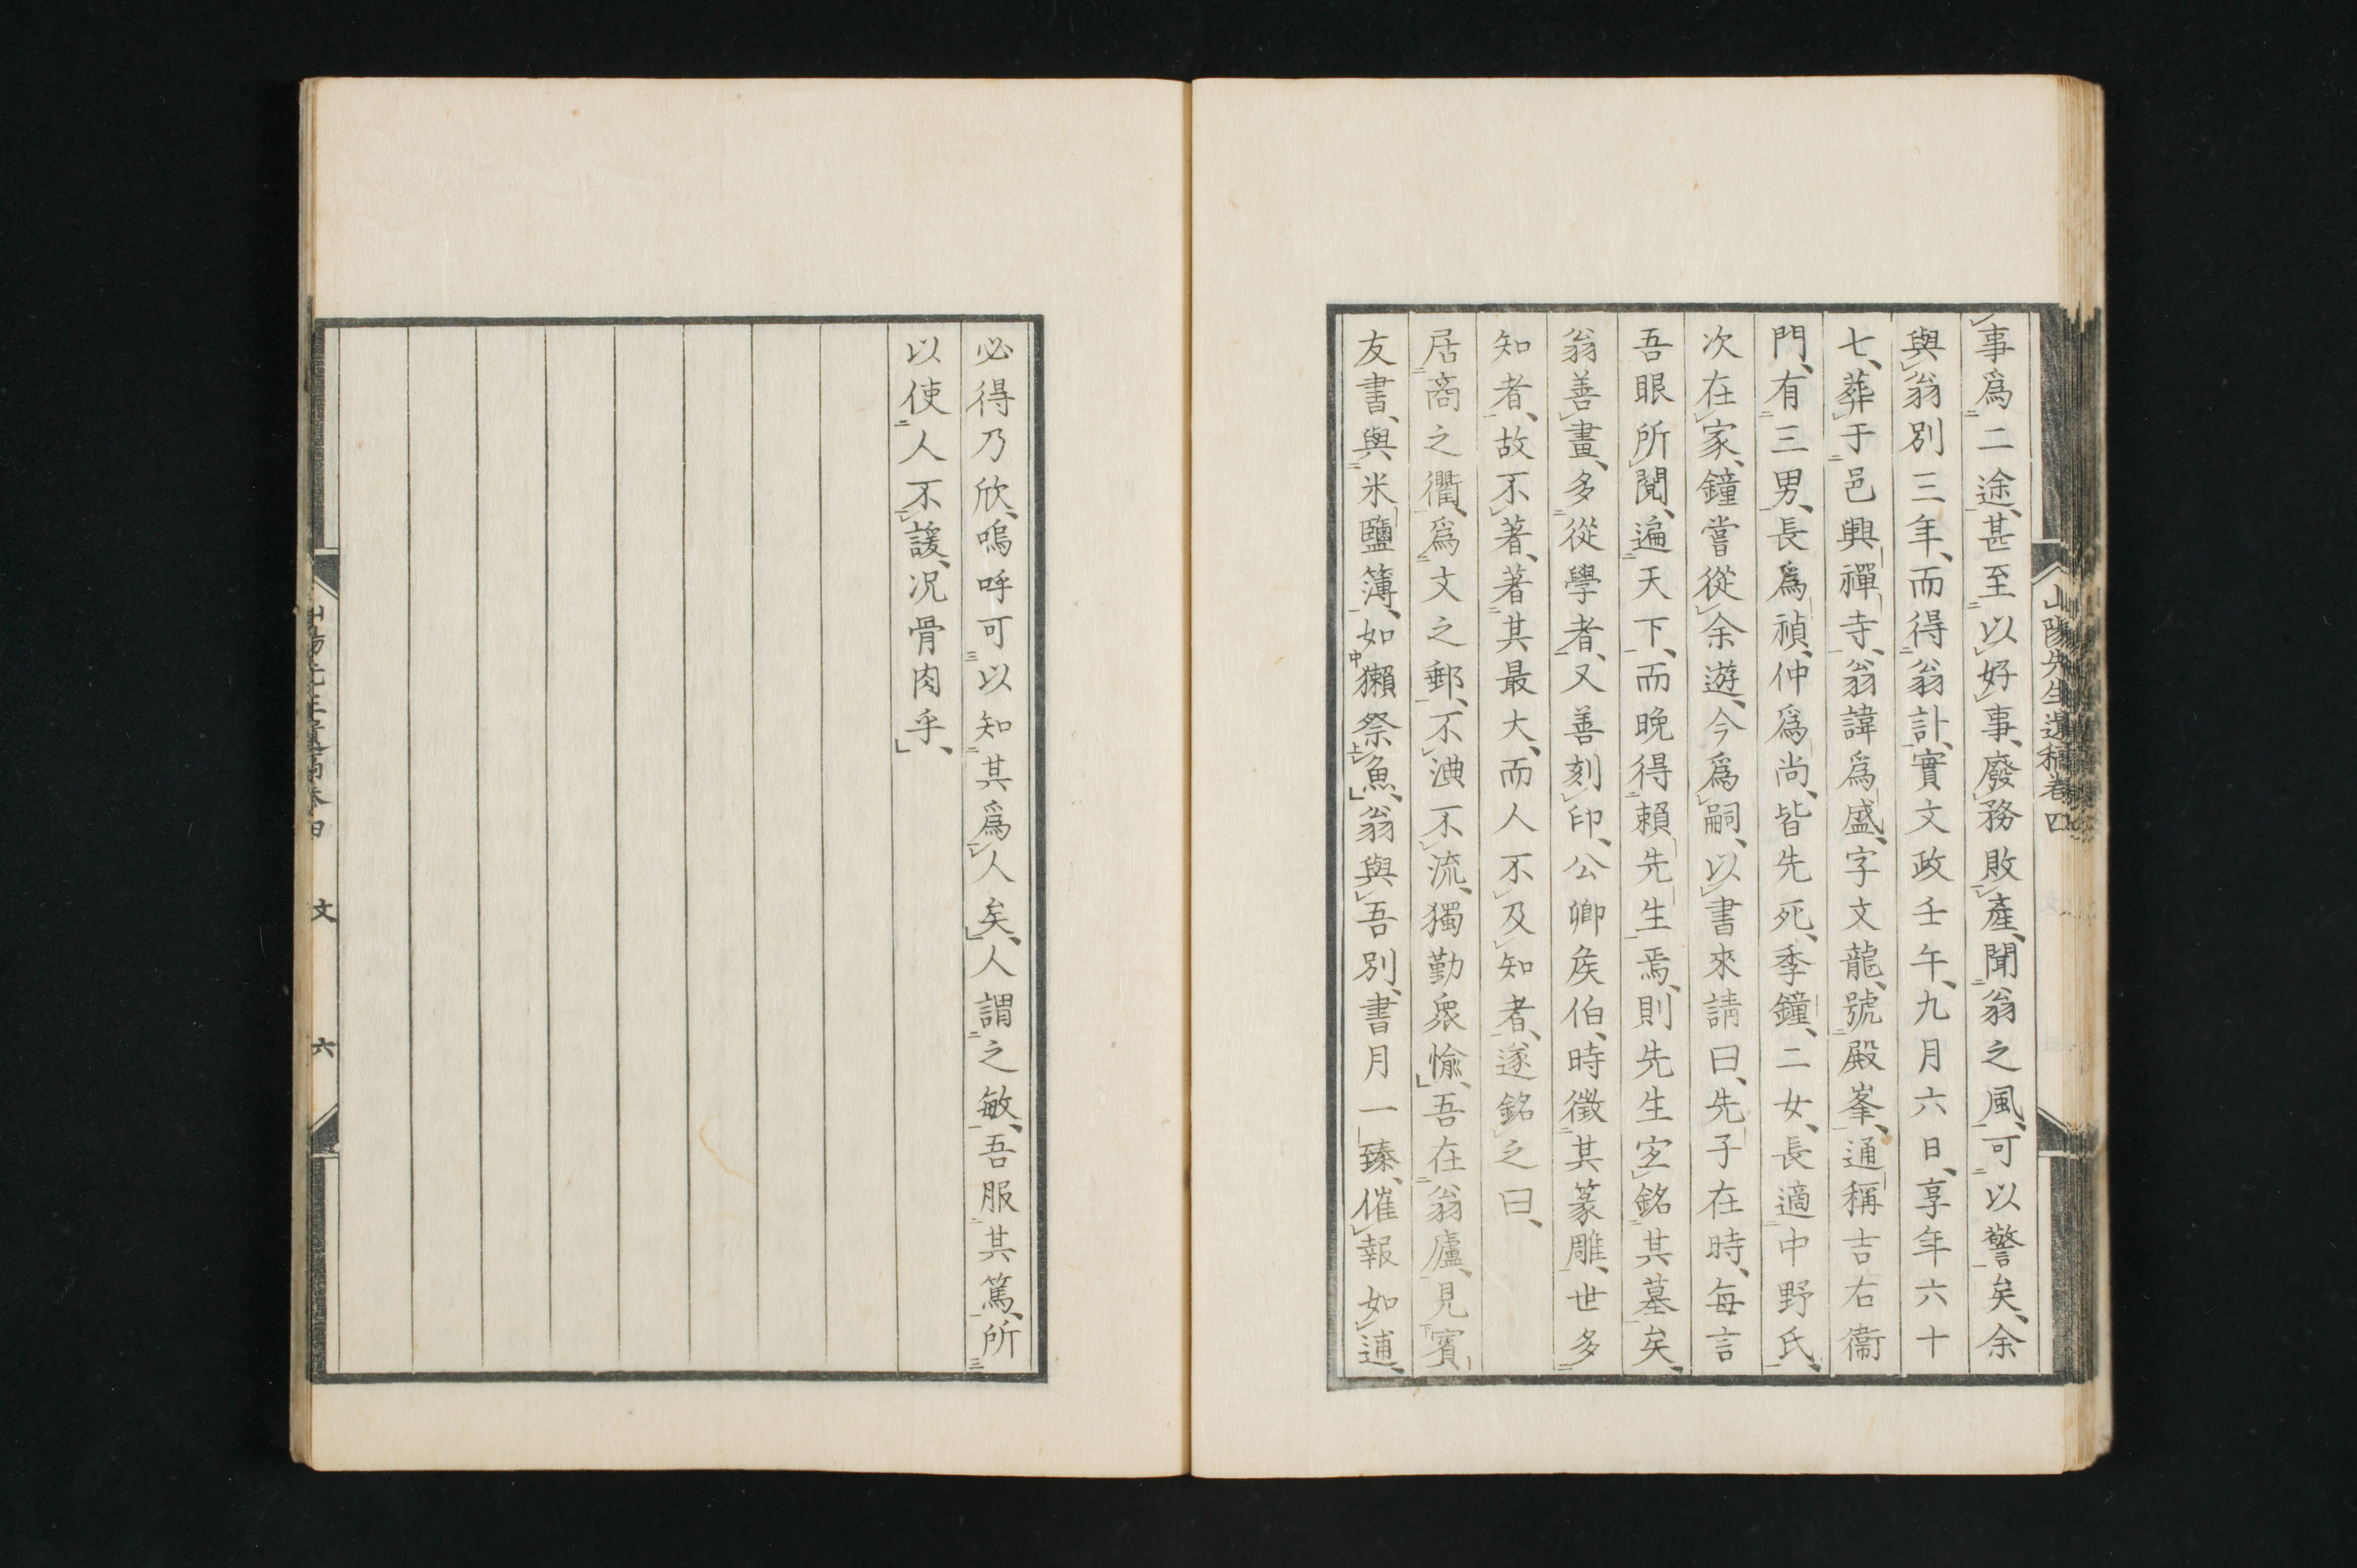 山陽先生遺稿卷四
事爲二途、甚至以好事、廢務敗產、聞翁之風、可以警矣、余
與翁別三年、而得翁訃、實文政壬午、九月六日、享年六十
七、葬于邑興禪寺、翁諱爲盛、字文龍、號殿峯、通稱吉右衞
門、有三男、長爲禎、仲爲尚、皆先死、季鐘、二女、長適中野氏、
次在家、鐘嘗從余遊、今爲嗣、以書來請曰、先子在時、每言
吾眼所閱、遍天下、而晚得賴先生焉、則先生宜銘其墓矣、
翁善畫、多從學者、又善刻印、公卿侯伯、時徵其篆雕、世多
知者、故不著、著其最大、而人不及知者、遂銘之曰、
居商之衢、爲文之郵、不淟不流、獨勤衆愉、吾在翁廬、見賓
友書、與米鹽簿、如獺祭魚、翁與吾別、書月一臻、催報如逋、
必得乃欣、嗚呼可以知其爲人矣、人謂之敏、吾服其篤、所
以使人不諼、况骨肉乎、
文 六